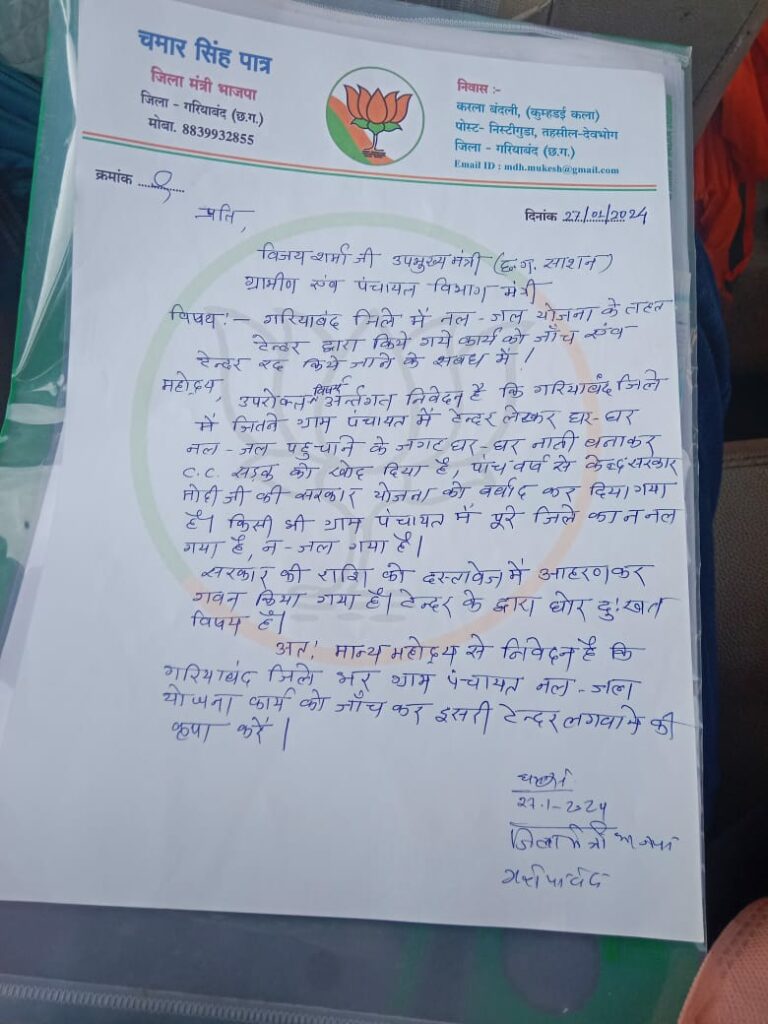 चमार सिंह पात्र
जिला मंत्री भाजपा
जिला - गरियाबंद (छ.ग.)
मोबा. 8839932855
निवास :-
करला बंदली, (कुम्हडई कला)
पोस्ट- निस्टीगुडा, तहसील-देवभोग
जिला - गरियाबंद (छ.ग.)
Email ID : mdh.mukesh@gmail.com
क्रमांक
दिनांक 27/01/2024
प्रति,
विजय शर्मा जी उपमुख्यमंत्री (छ.ग. साशन)
ग्रामीण एंव पंचायत विभाग मंत्री
विषय:- गरियाबंद जिले में नल-जल योजना के तहत
टेन्डर द्वारा किये गये कार्य को जाँच एंव
टेन्डर रद किये जाने के सबध में !
महोदय,
उपरोक्त विषय अर्न्तगत निवेदन है कि गरियाबंद जिले
में जितने ग्राम पंचायत में टेन्डर लेकर घर-घर
नल-जल पहुचाने के जगह घर-घर नाली बनाकर
C.C. सड़क को खोद दिया है, पांच वर्ष से केन्द्र सरकार
मोदी जी की सरकार योजना को बर्बाद कर दिया गया
है। किसी भी ग्राम पंचायत में पूरे जिले का न नल
गया है, न-जल गया है।
सरकार की राशि को दस्तावेज में आहरण कर
गवन किया गया है। टेन्डर के द्वारा घोर दु:खत
विषय है।
अत: मान्य महोदय से निवेदन है कि
गरियाबंद जिले भर ग्राम पंचायत नल-जल
योजना कार्य को जाँच कर दुसरी टेन्डर लगवाने की
कृपा करें।
27-1-2024
जिला मंत्री भाजपा
गरियाबंद